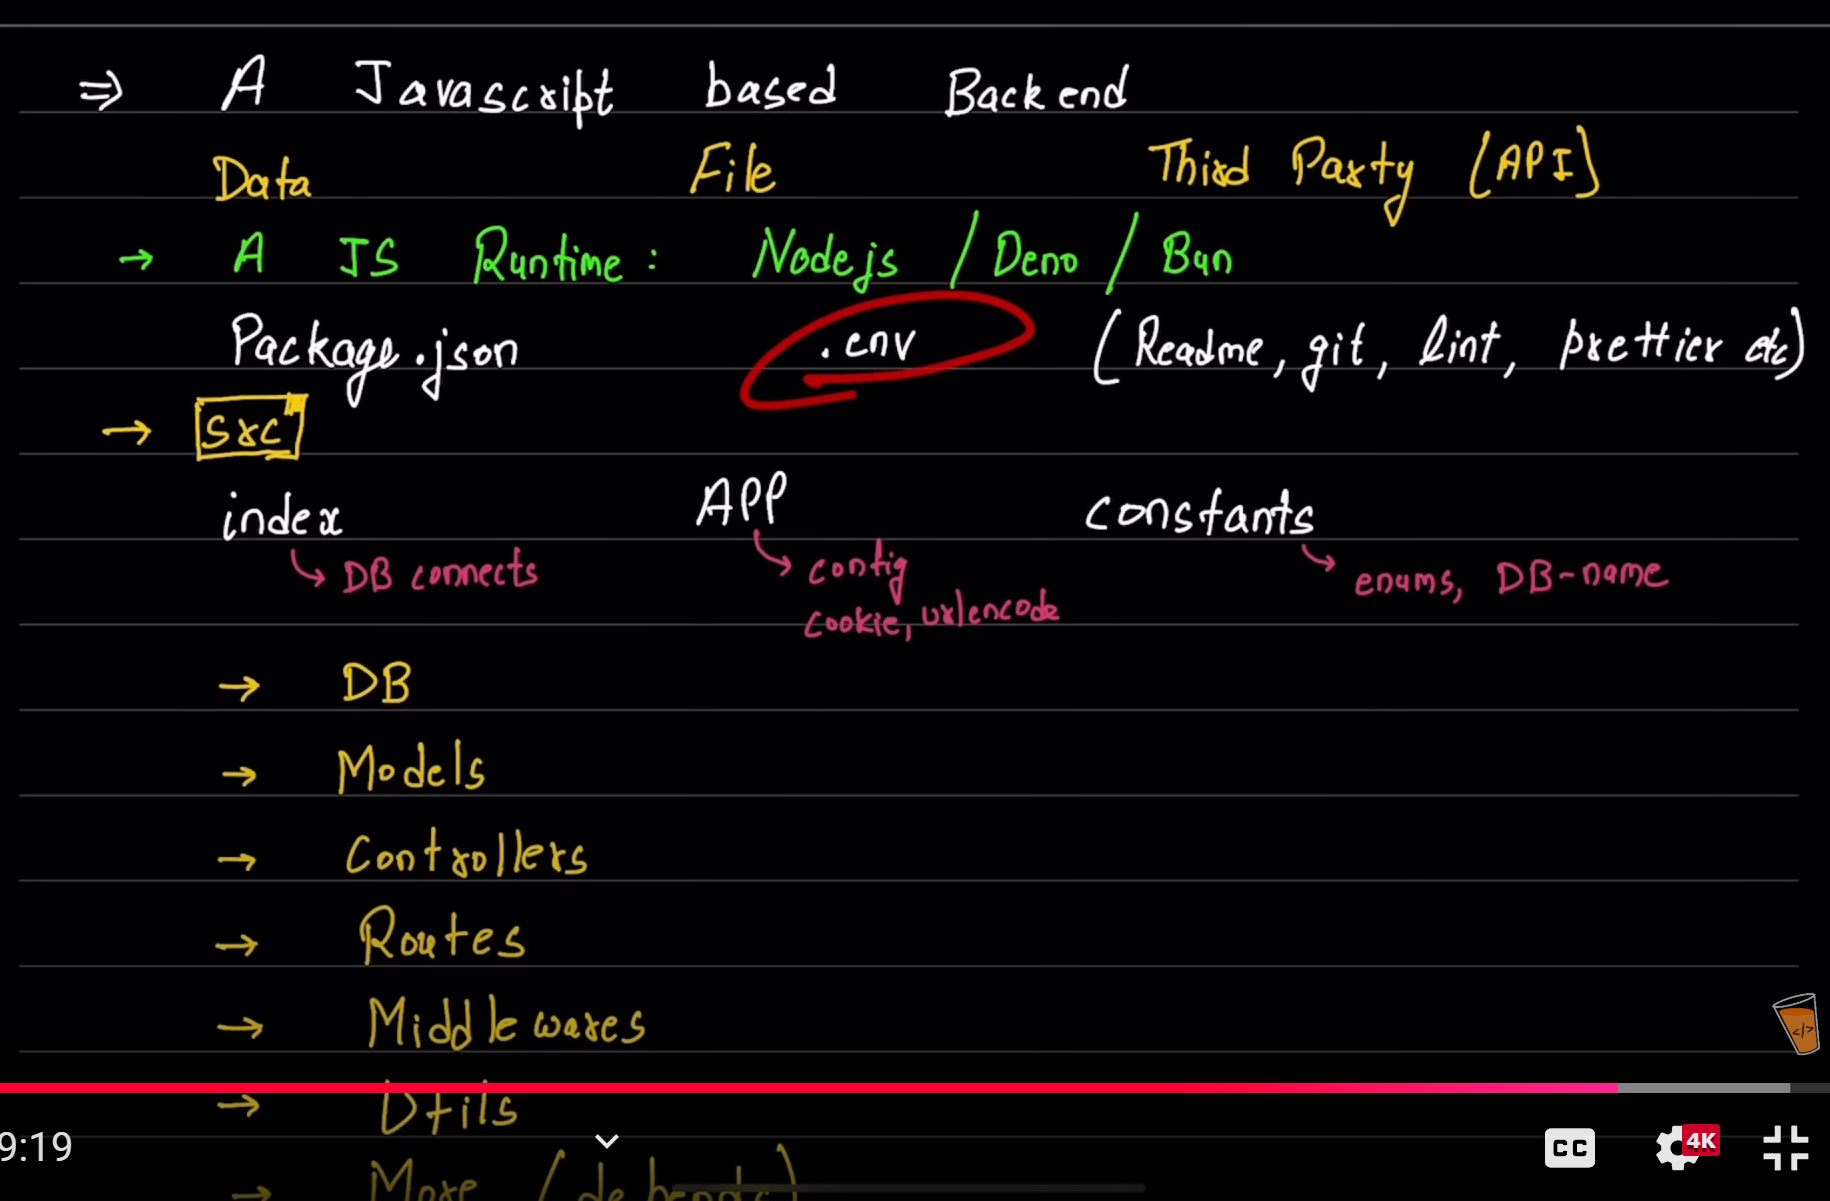 ⇒ A Javascript based Backend
Data File Third Party (API)
→ A JS Runtime : Nodejs / Deno / Bun
Package.json .env (Readme, git, lint, prettier etc)
→ src
index APP constants
DB connects config enums, DB-name
cookie, urlencode
→ DB
→ Models
→ Controllers
→ Routes
→ Middlewares
→ Utils
9:19 CC 4K
→ More (depends)